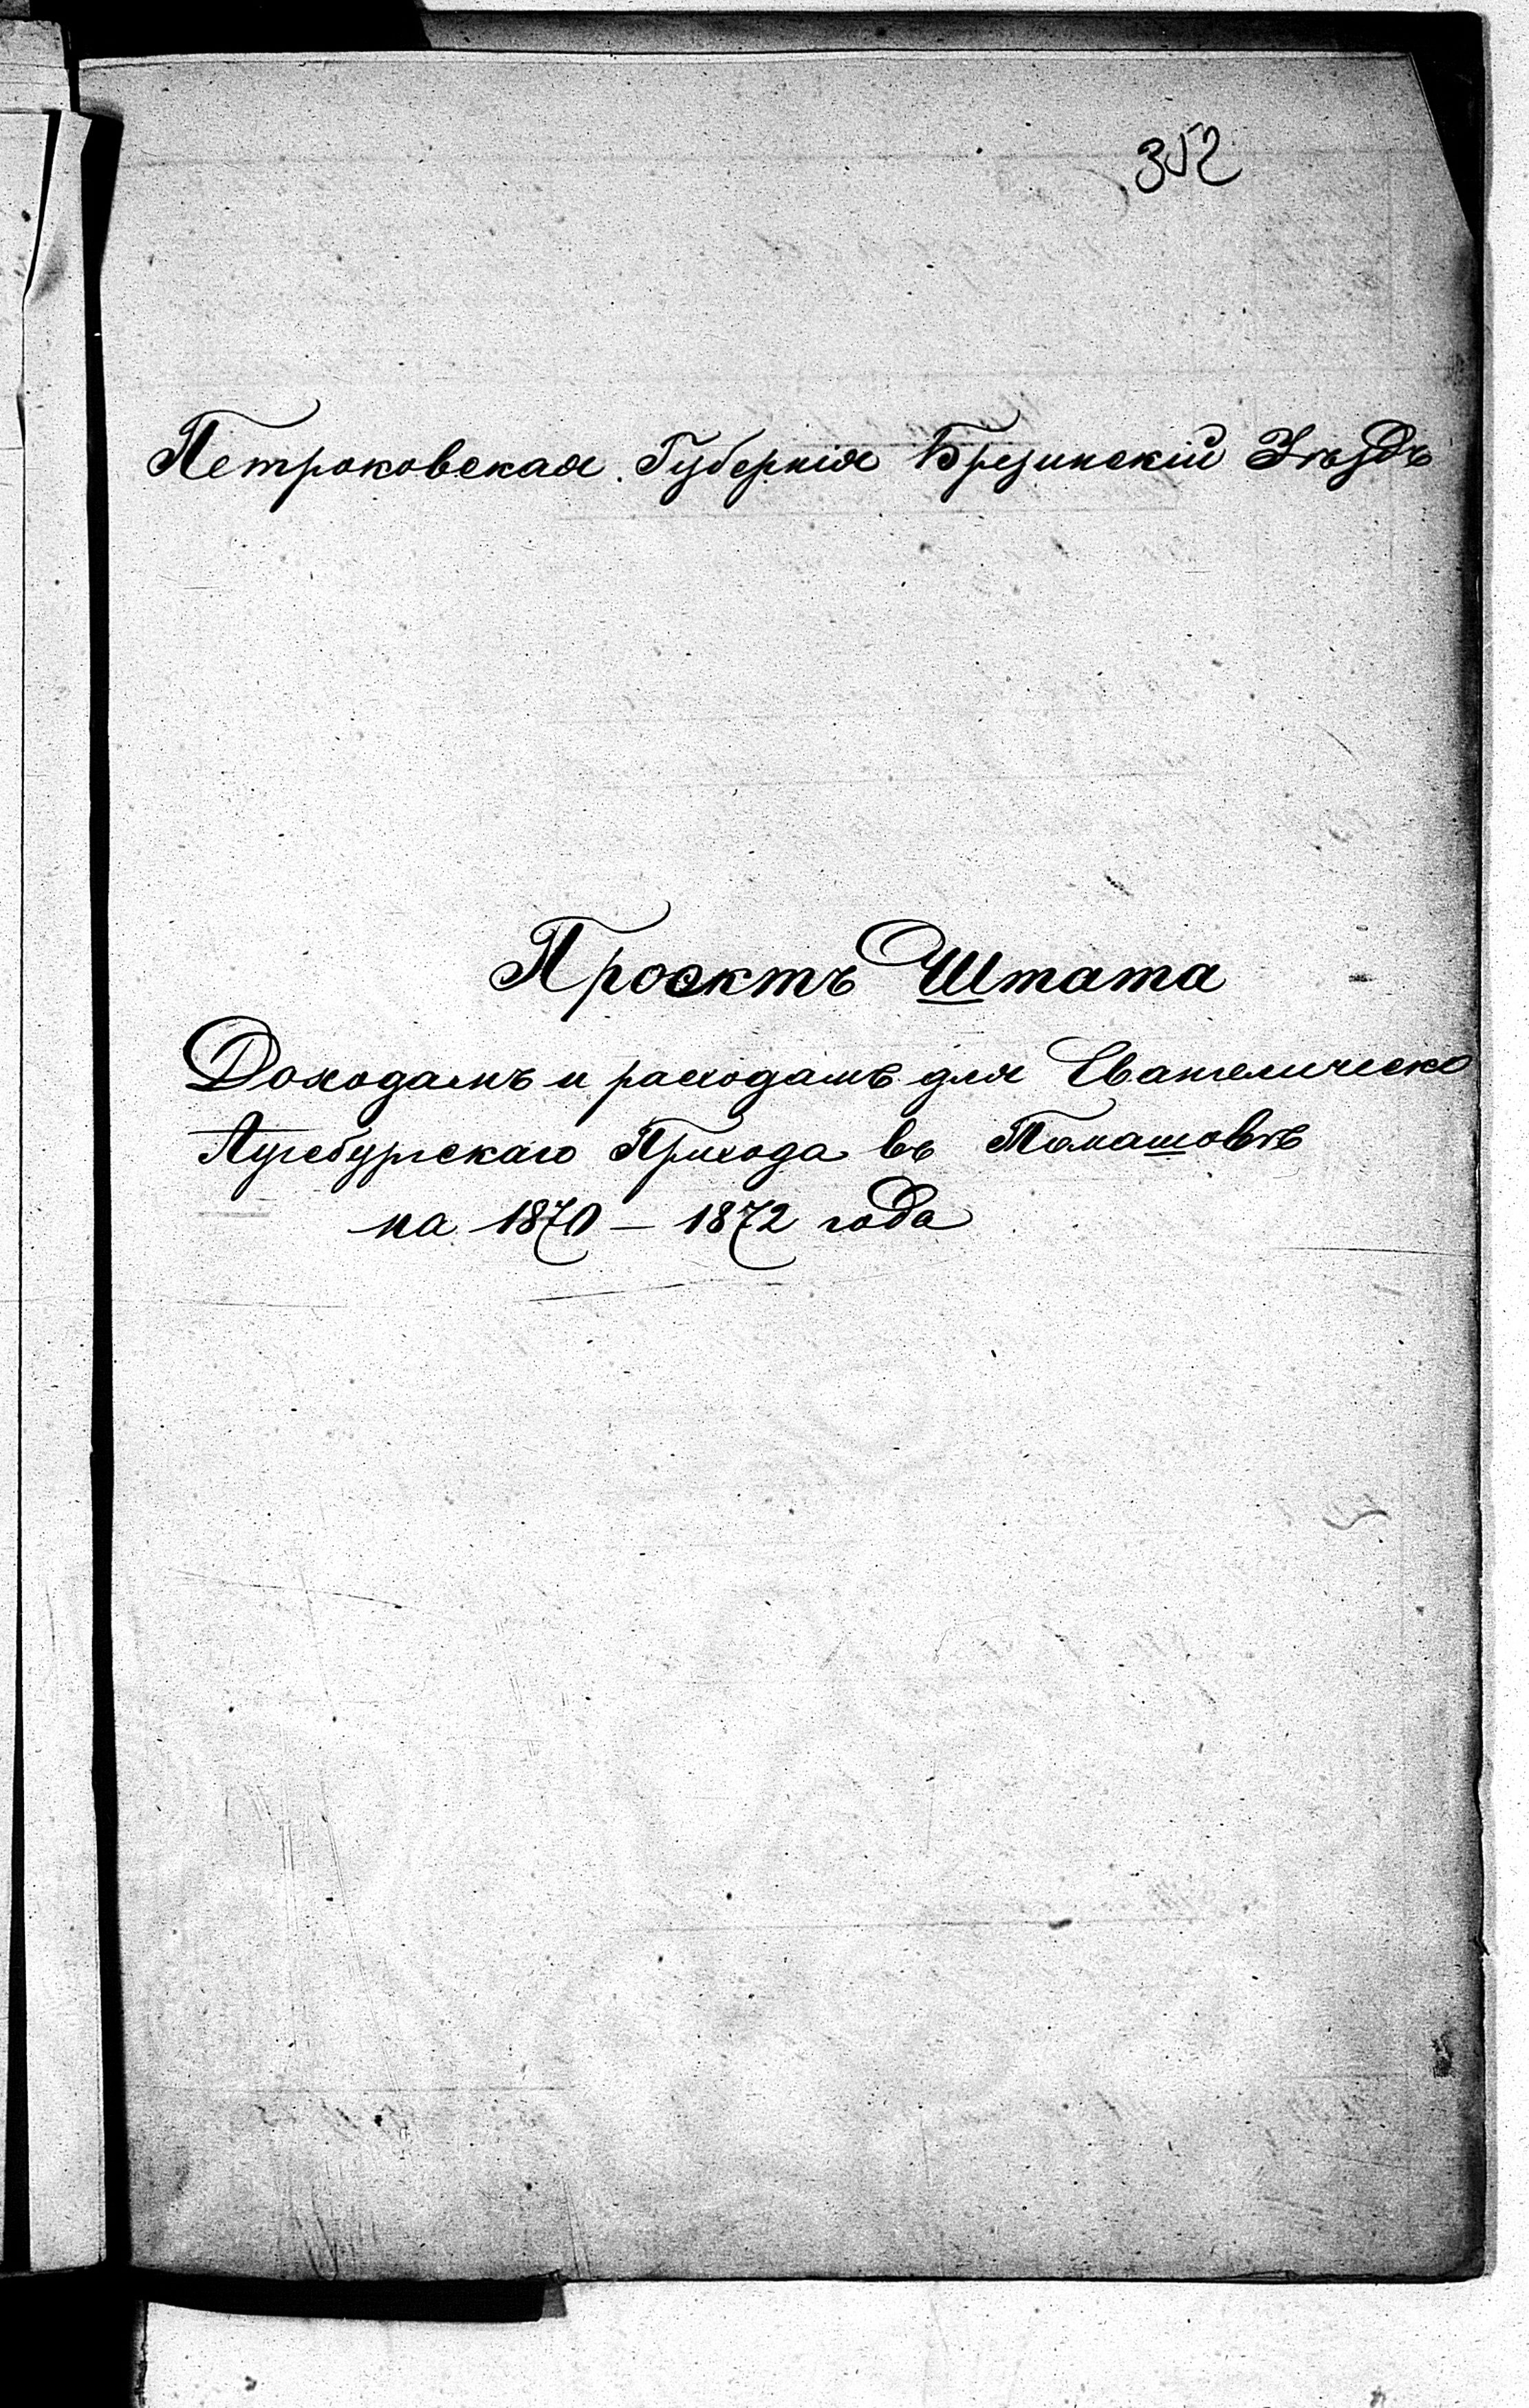 352
Петроковская Губернія Брезинскій Уѣздъ
Проэктъ Штата
Доходамъ и расходамъ для Евангелическо
Аугсбургскаго Прихода въ Томашовѣ
на 1870 – 1872 года